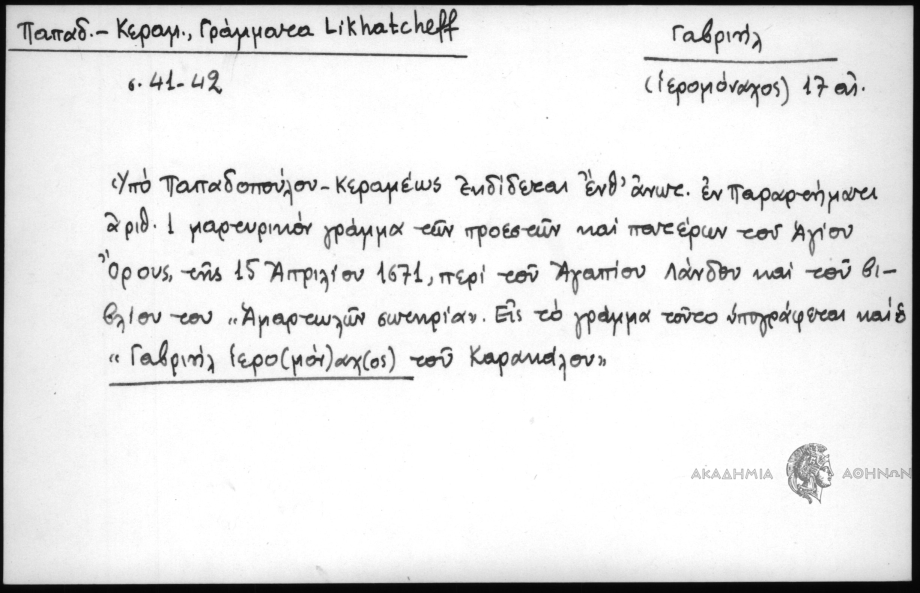 Παπαδ.-Κεραμ., Γράμματα Likhatcheff
Γαβριήλ
σ. 41-42
(ἱερομόναχος) 17 αἰ.
Ὑπό Παπαδοπούλου-Κεραμέως ἐκδίδεται ἔνθ' ἄνωτ. ἐν Παραρτήματι
ἀριθ. 1 μαρτυρικόν γράμμα τῶν προεστῶν καί πατέρων τοῦ Ἁγίου
Ὄρους, τῆς 15 Ἀπριλίου 1671, περί τοῦ Ἀγαπίου Λάνδου καί τοῦ βι-
βλίου του «Ἁμαρτωλῶν σωτηρία». Εἰς τό γράμμα τοῦτο ὑπογράφεται καί ὁ
«Γαβριήλ ἱερο(μόν)αχ(ος) τοῦ Καρακάλου»
ΑΚΑΔΗΜΙΑ ΑΘΗΝΩΝ